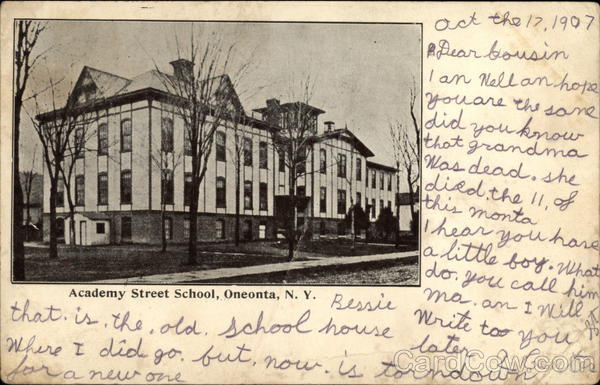 Oct the 17, 1907
Dear Cousin
I an Well an hope
you are the same
did you know
that grandma
Was dead. she
died. the 11, of
this monta
I hear you have
a little boy. What
do, you call him
Ma. an I Will
Write too you
later
Academy Street School, Oneonta, N. Y.
Bessie
that. is. the. old. School house
Where I did go. but. now. is torndown
for a new one
CardCow.com